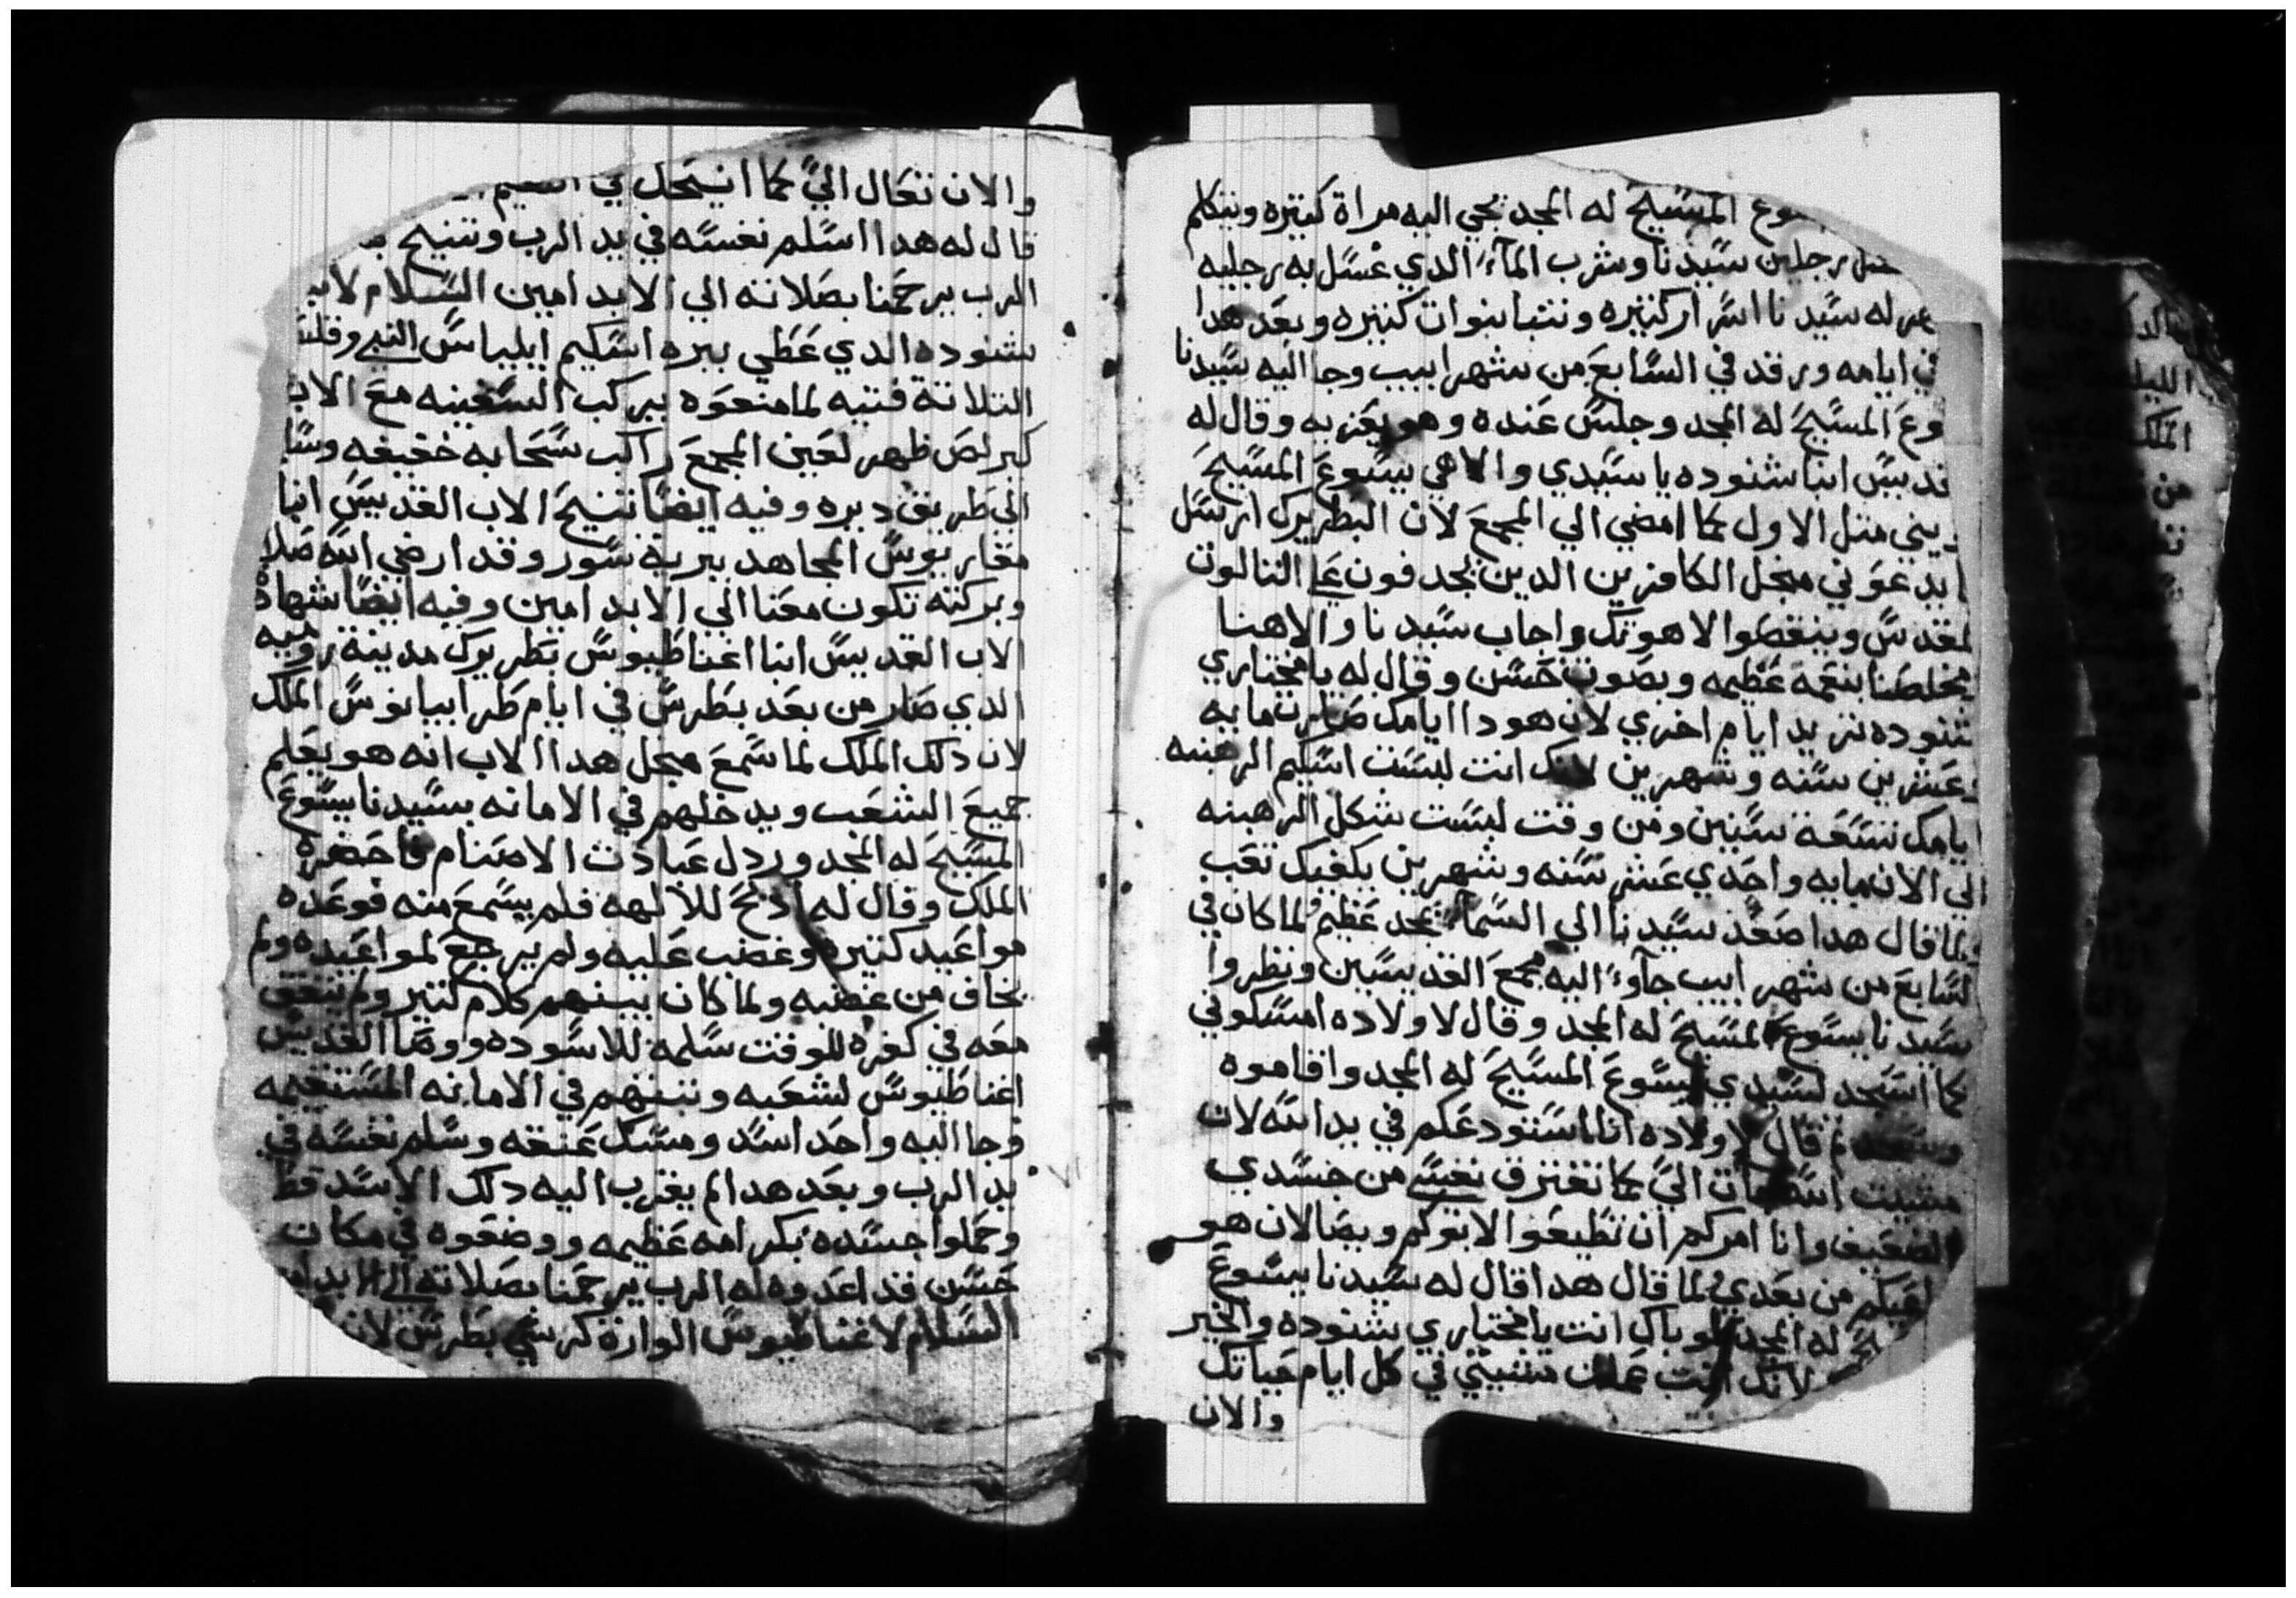 المسيح له المجد يجي اليه مراة كتيره ويتكلم
رجلين سيدنا وشرب المآء الدي غسل به رجليه
له سيدنا اسرار كتيره ونتبا نبوات كتيره وبعد هدا
في ايامه ورقد في السابع من شهر ابيب وجا اليه سيدنا
وع المسيح له المجد وجلس عنده وهو يعزيه وقال له
قديس انبا شنوده يا سيدي والاهي يسوع المسيح
يني متل الاول كما امضي الي المجمع لان البطريرك ارسل
يدعوني مجل الكافرين الدين يجدفون علي التالوت
لمقدس وينقطوا لاهوتك واجاب سيدنا والاهنا
مخلصنا بنعمة عظيمه وبصوت حسن وقال له يا مختاري
شنوده نزيد ايام اخري لان هودا ايامك صارت مايه
وعشرين سنه وشهرين لانك انت لبست اسكيم الرهبنه
ايامك تسعة سنين ومن وقت لبست شكل الرهبنه
الي الان مايه واحدي عشر سنه وشهرين يكفيك تعب
ولما قال هدا صعد سيدنا الي السمآء بمجد عظيم ولما كان في
لسابع من شهر ابيب جآوء اليه مجمع القديسين ونظروا
سيدنا يسوع المسيح له المجد وقال لاولاده امسكوني
كما اسجد لسيدي يسوع المسيح له المجد واقاموه
تم قال لاولاده انا استودعكم في يد الله لان
مشيت الله الي كما تفترق نفسي من جسدي
الضعيف وانا امركم ان تطيعوا لابوكم ويصا لان هو
من بعدي لما قال هدا قال له سيدنا يسوع
له المجد طوباك انت يا مختاري شنوده والخير
لانك انت عملت مشيتي في كل ايام حياتك
والان
والان تعال الي كما انيحك في
قال له هدا اسلم نفسه في يد الرب وتنيح
الرب يرحمنا بصلاته الي الابد امين السلام لاب
شنوده الدي غطي ببره اسكيم ايلياس النبي وقلنس
التلاتة فتيه لما منعوه يركب السفينه مع الاب
كيرلص ظهر لعين المجمع راكب سحابه خفيفه وسا
الي طريق ديره وفيه ايضا تنيح الاب القديس انبا
مقاريوس المجاهد ببرية سور وقد ارضي الله صلا
وبركته تكون معنا الي الابد امين وفيه ايضا شهادة
الاب القديس انبا اغناطيوس بطريرك مدينة روميه
الدي صار من بعد بطرس في ايام طرابيانوس الملك
لان دلك الملك لما سمع مجل هدا الاب انه هو يعلم
جميع الشعب ويدخلهم في الامانه بسيدنا يسوع
المسيح له المجد وردل عبادت الاصنام فاحضره
الملك وقال له ادبح للآلهه فلم يسمع منه فوعده
مواعيد كتيره وغضب عليه ولم يرجع لمواعيده ولم
يخاف من غضبه ولما كان بينهم كلام كتير ولم يتفق
معه في كفره للوقت سلمه للاسوده ووصا القديس
اغناطيوس لشعبه وتبتهم في الامانه المستقيمه
وجا اليه واحد اسد ومسك عنقه وسلم نفسه في
يد الرب وبعد هدا لم يقرب اليه دلك الاسد قط
وحملوا جسده بكرامه عظيمه ووضعوه في مكان
حسن قد اعدوه له الرب يرحمنا بصلاته الي الابد امين
السلام لاغناطيوس الوارت كرسي بطرس لان